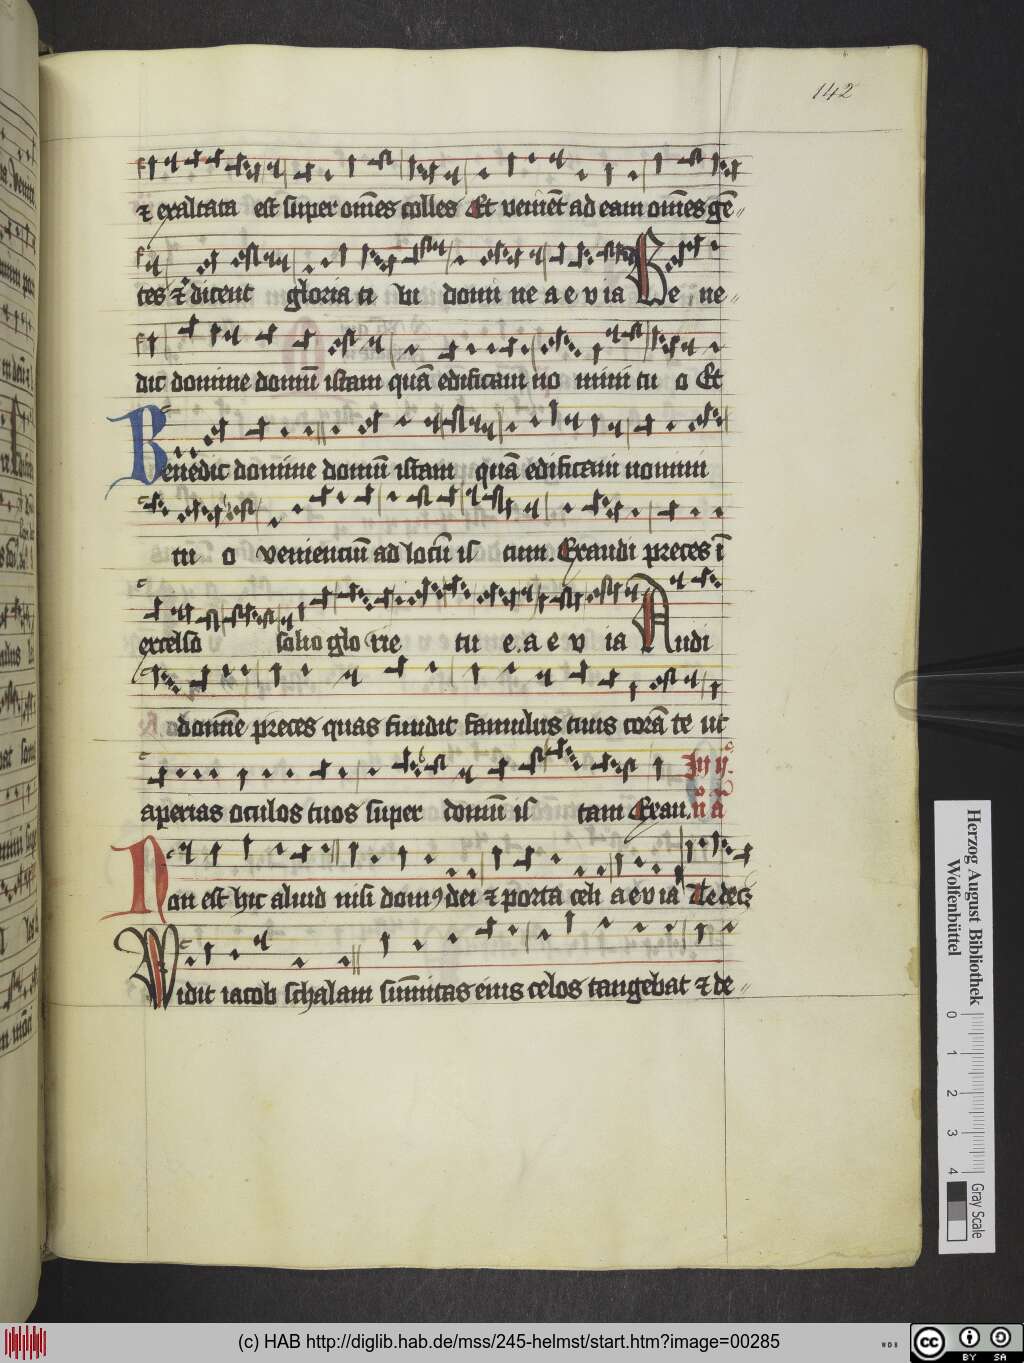 142
⁊ exaltata est super om̄es colles Et venie̅t ad eam om̄es ge̅
tes ⁊ dicent gloria ti bi domi ne a e v ia Be ne
dic domine domū istam quā edificaui no mini tu o Et
Benedic domine domū istam quā edificaui nomini
tu o venienciū ad locū is tum. Exaudi preces ī
excelso solio glo rie tu e. a e v ia Audi
domn̄e preces quas fundit famulus tuus corā te ut
aperias oculos tuos super domū is tam Exau.
Non est hic aliud nisi domꝰ dei ⁊ porta celi a e v ia
Vidit iacob schalam sūmitas eius celos tangebat ⁊ de
Herzog August Bibliothek
Wolfenbüttel
0 1 2 3 4
Gray Scale
(c) HAB http://diglib.hab.de/mss/245-helmst/start.htm?image=00285
WDB
cc BY SA